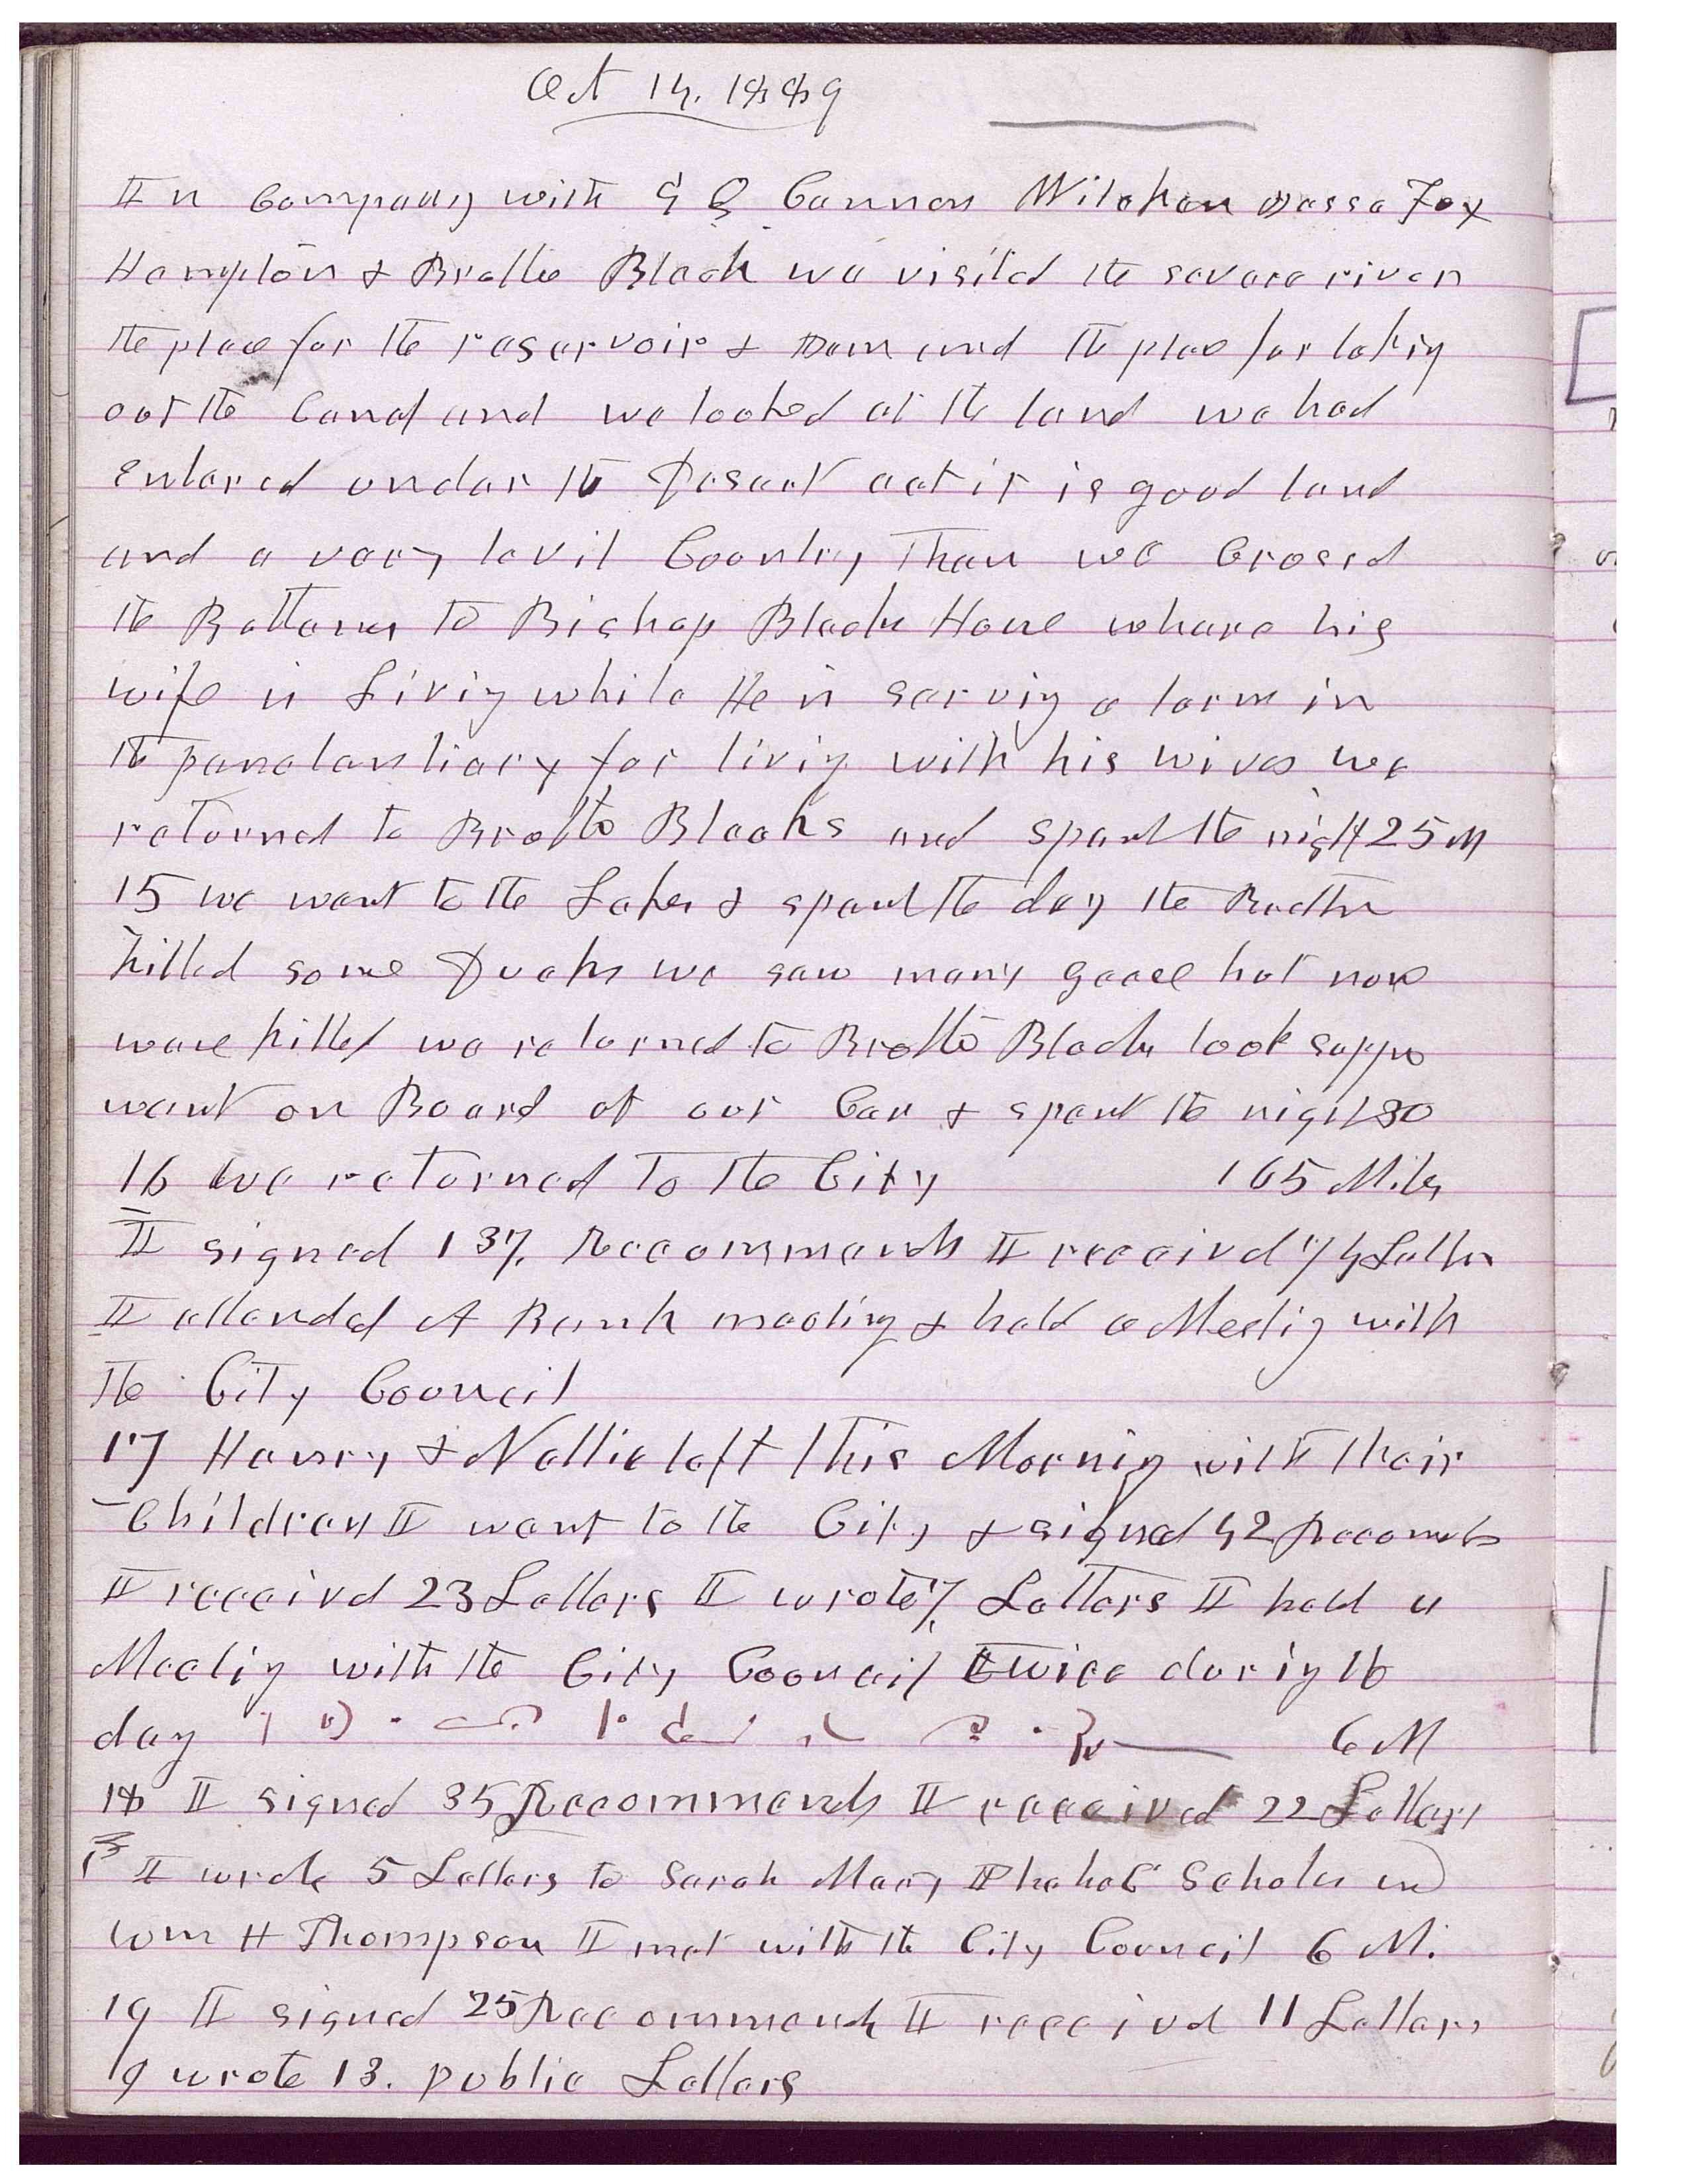 Oct 14, 1889
In Company with G Q Cannon Wilchen Jesse Fox
Hampton & Brother Black we visited the severe river
the place for the reservoir & Dam and the place for taking
out the Canal and we looked at the land we had
Entered under the Desert act it is good land
and a very levil Country Then we Crossed
the Bottoms to Bishop Black Home whare his
wife is Living while He is serving a term in
the penetentiary for living with his wives we
returned to Brother Blacks and spent the night 25 M
15 we went to the Lakes & spent the day the Brethren
killed some Ducks we saw many geese but none
ware killed we returned to Brother Blacks took supper
went on Board of our Car & spent the night 30
16 we returned to the City 165 Miles
I signed 137 Recommends I receivd 74 Letters
I attended A Bank meeting & held a Meeting with
the City Council
17 Henry & Nellie left this Morning with their
Children I went to the City & signed 42 Recomds
I receivd 23 Letters I wrote 7 Letters I held a
Meeting with the City Council twice during the
day 6 M
18 I signed 35 Recommends I received 22 Letters
I wrote 5 Letters to Sarah Mary Phebe Scholes and
Wm H Thompson I met with the City Council 6 M.
19 I signed 25 Recommends I receivd 11 Letters
19 wrote 13. public Letters